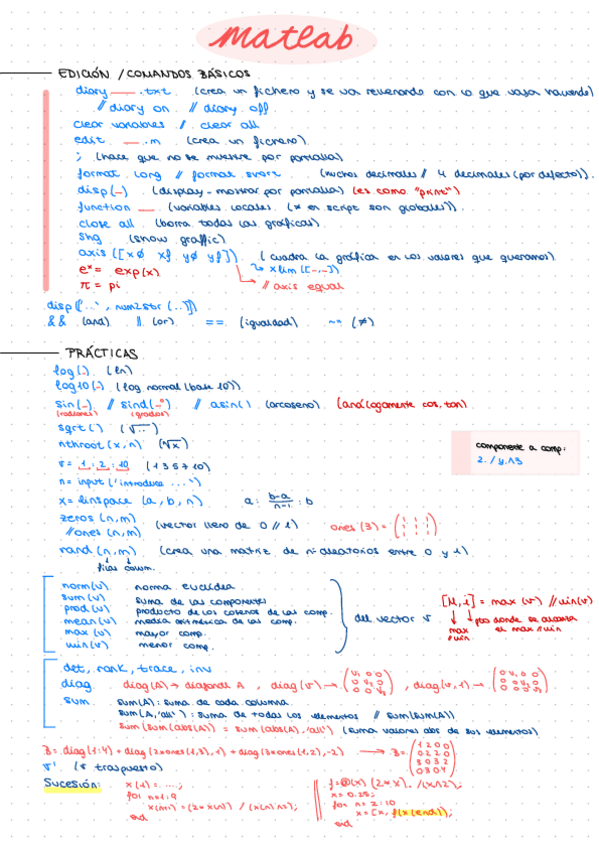 Matlab
EDICIÓN / COMANDOS BÁSICOS
diary ___ .txt (crea un fichero y se va rellenando con lo que vaya haciendo)
// diary on // diary off
clear variables // clear all
edit ___ .m (crea un fichero)
; (hace que no se muestre por pantalla)
format long // format short (muchos decimales // 4 decimales (por defecto)).
disp(_) (display - mostrar por pantalla) (es como "print")
function __ (variables locales (* en script son globales)).
close all (borra todas las gráficas)
shg (show graffic)
axis ([xø xf yø yf]) (cuadra la gráfica en los valores que queramos)
eˣ = exp(x) xlim([-,-])
π = pi // axis equal
disp(['..', num2str (..)])
&& (and) || (or) == (igualdad) ~= (≠)
PRÁCTICAS
log(.) (ln)
log10(.) (log normal (base 10))
sin(_) // sind(_°) // asin() (arcoseno) (análogamente cos, tan)
(radianes) (grados)
sqrt() (√..)
nthroot(x,n) (ⁿ√x)
componente a comp:
2./y.^3
v = 1:2:10 (1 3 5 7 10)
n = input('introduce ...')
x = linspace (a, b, n) a: b-a/n-1 : b
zeros (n,m)
// ones (n,m) (vector lleno de 0 // 1) ones (3) = (1 1 1 1 1 1 1 1 1)
rand (n,m) (crea una matriz de nºaleatorios entre 0 y 1)
filas colum.
norm(v) norma euclídea
sum(v) suma de las componentes
prod(v) producto de los de las comp.
mean(v) media aritmética de las comp.
max (v) mayor comp.
min(v) menor comp.
del vector v
[M,i] = max (v) // min(v)
max //min
pto donde se alcanza el max // min
det, rank, trace, inv
diag diag(A) → diagonal A , diag(v) → , diag(v,-1) →
sum sum(A): suma de cada columna
sum(A,'all') : suma de todos los elementos // sum(sum(A))
sum(sum(abs(A)) = sum(abs(A),'all') (suma valores abs de sus elementos)
B = diag(1:4) + diag(2*ones(1,3),1) + diag(3*ones(1,2),-2) → B = (1 2 0 0 0 2 2 0 3 0 3 2 0 3 0 4)
v' (v traspuesto)
Sucesión:
x(1) = ....;
for n=1:9
x(n+1) = (2*x(n)) / (x(n)^2);
end
f=@(x) (2*x)./(x^2);
x= 0.25;
for n= 2:10
x=[x, f(x(end))];
end